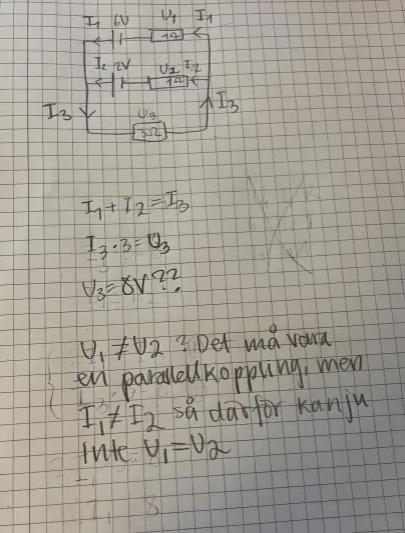 I₁ 6V U₁ I₁
1Ω
I₂ 2V U₂ I₂
1Ω
I₃ U₃ I₃
3Ω
I₁ + I₂ = I₃
I₃ · 3 = U₃
U₃ = 8V??
U₁ ≠ U₂ ? Det må vara
en parallellkoppling, men
I₁ ≠ I₂ så därför kan ju
inte U₁ = U₂